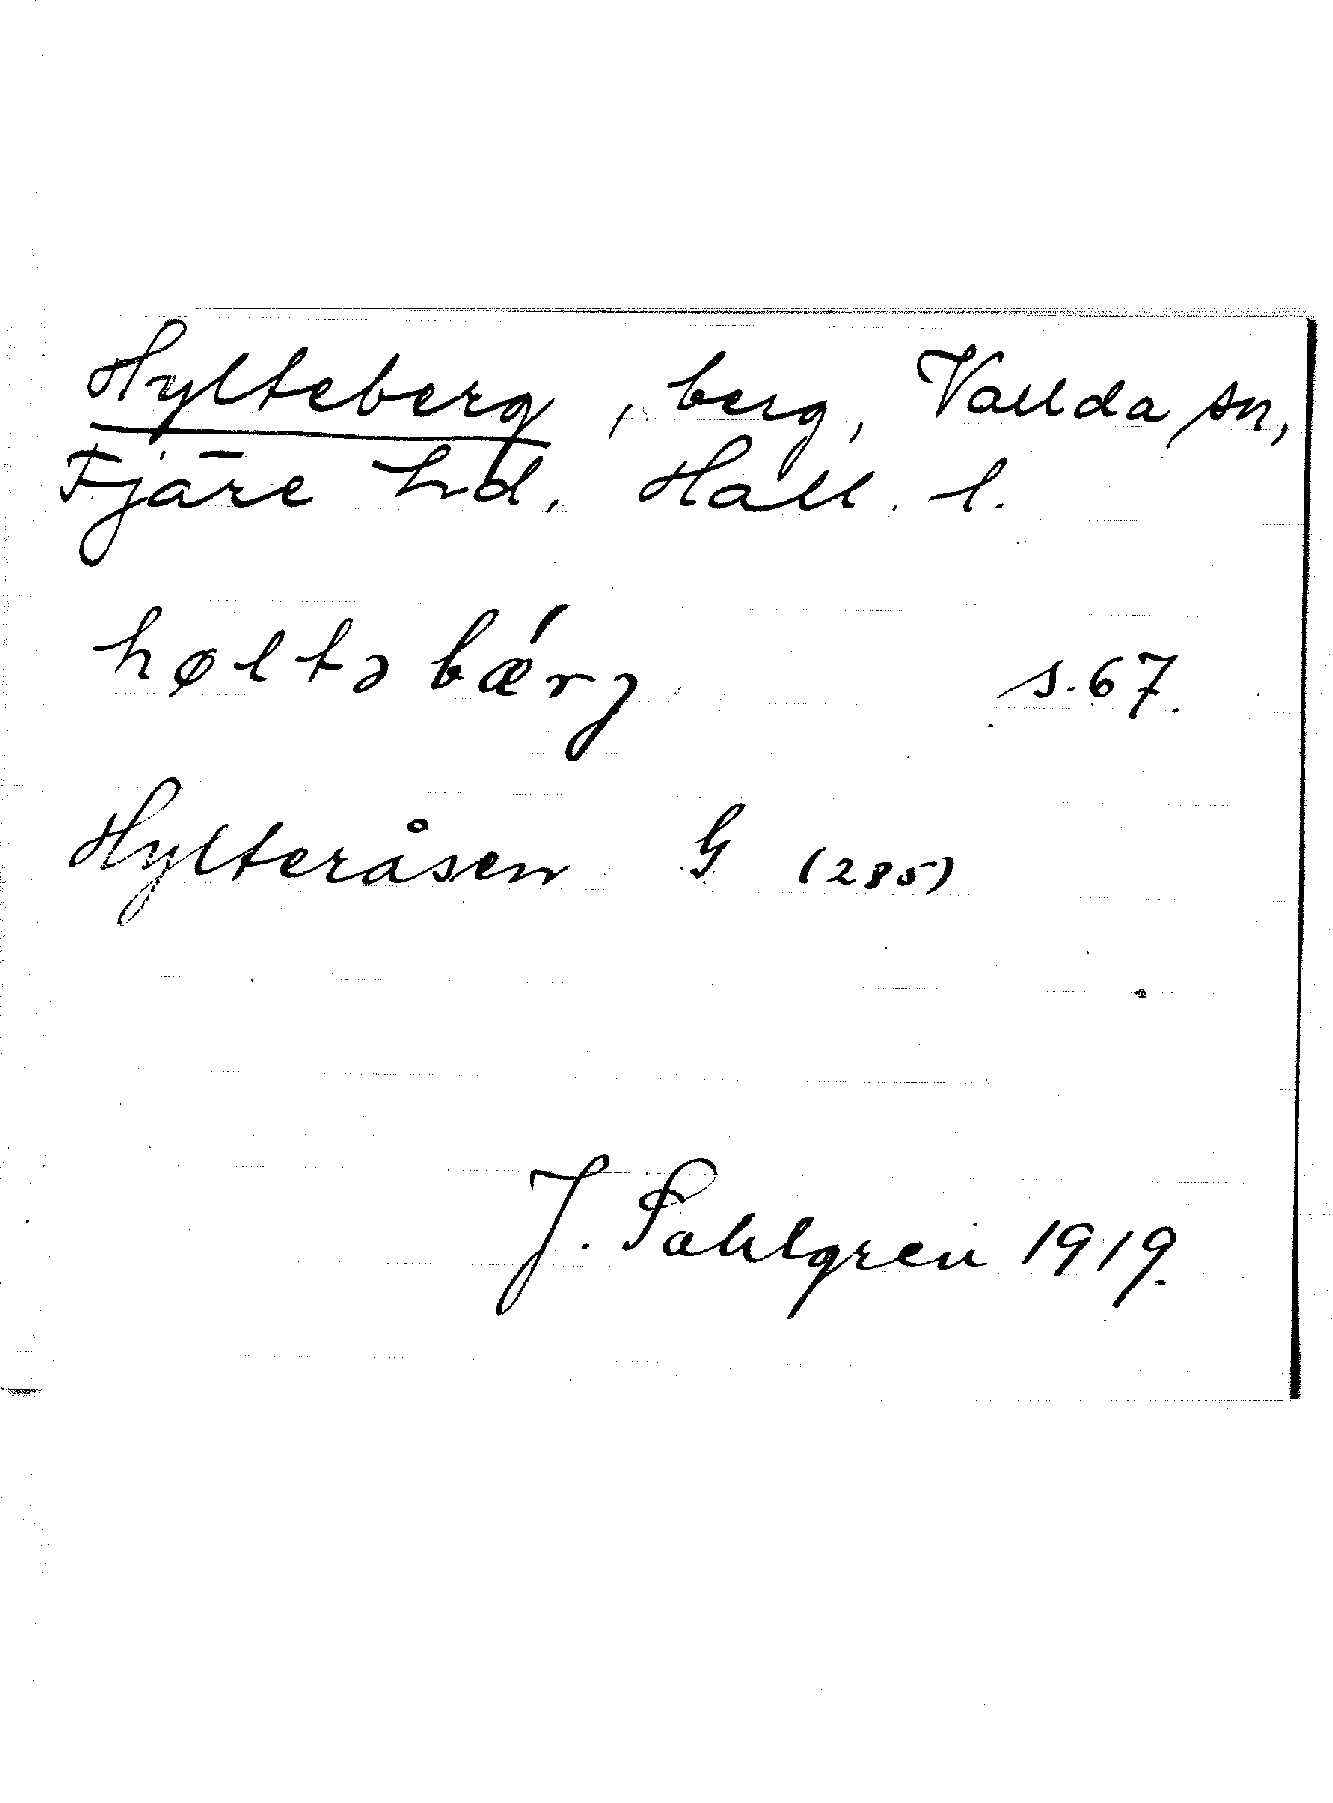 Hylteberg, berg, Vallda sn,
Fjäre hd, Hall. l.
høltəbǽrj s.67.
Hylteråsen G (285)
J. Sahlgren 1919.